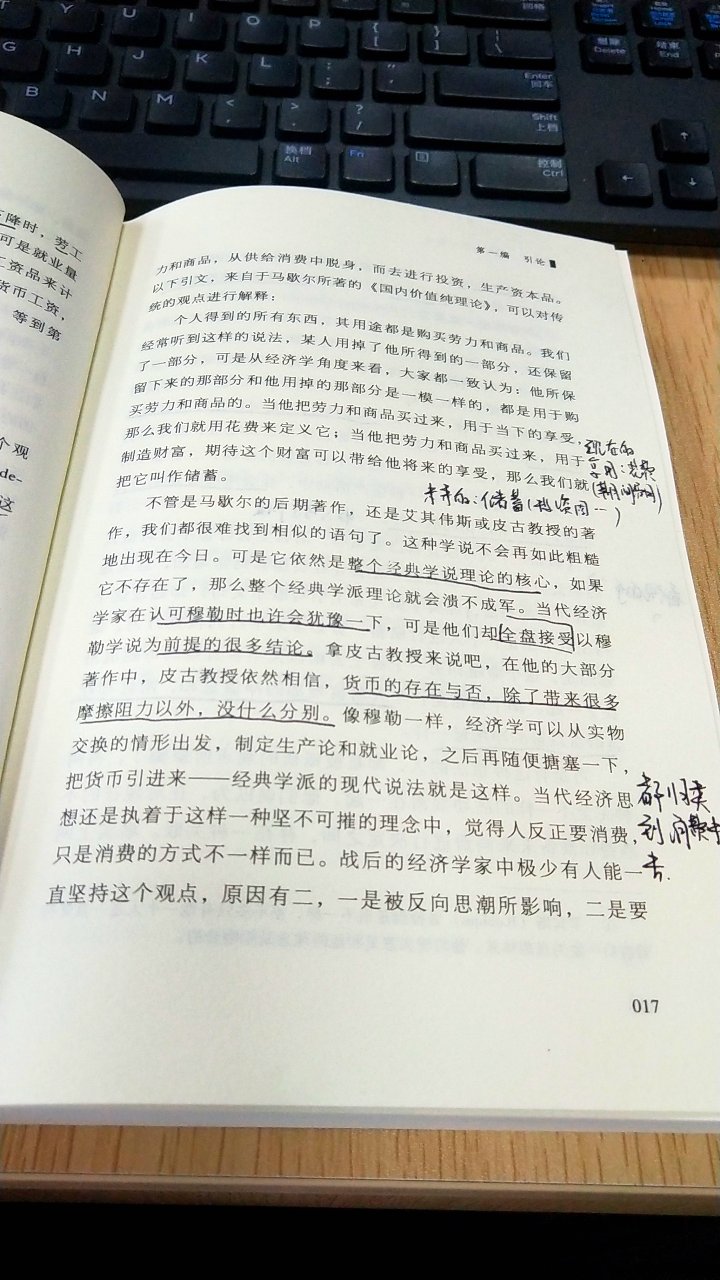 降时，劳工
可是就业量
工资品来计
货币工资，
等到第
个观
de-
这
第一编 引论
力和商品，从供给消费中脱身，而去进行投资，生产资本品。
以下引文，来自于马歇尔所著的《国内价值纯理论》，可以对传
统的观点进行解释：
个人得到的所有东西，其用途都是购买劳力和商品。我们
经常听到这样的说法，某人用掉了他所得到的一部分，还保留
了一部分，可是从经济学角度来看，大家都一致认为：他所保
留下来的那部分和他用掉的那部分是一模一样的，都是用于购
买劳力和商品的。当他把劳力和商品买过来，用于当下的享受，
那么我们就用花费来定义它；当他把劳力和商品买过来，用于
制造财富，期待这个财富可以带给他将来的享受，那么我们就
把它叫作储蓄。
现在的
享用：花费
未来的：储蓄
不管是马歇尔的后期著作，还是艾其伟斯或皮古教授的著
作，我们都很难找到相似的语句了。这种学说不会再如此粗糙
地出现在今日。可是它依然是整个经典学说理论的核心，如果
它不存在了，那么整个经典学派理论就会溃不成军。当代经济
学家在认可穆勒时也许会犹豫一下，可是他们却全盘接受以穆
勒学说为前提的很多结论。拿皮古教授来说吧，在他的大部分
著作中，皮古教授依然相信，货币的存在与否，除了带来很多
摩擦阻力以外，没什么分别。像穆勒一样，经济学可以从实物
交换的情形出发，制定生产论和就业论，之后再随便搪塞一下，
把货币引进来——经典学派的现代说法就是这样。当代经济思
想还是执着于这样一种坚不可摧的理念中，觉得人反正要消费，
只是消费的方式不一样而已。战后的经济学家中极少有人能一
直坚持这个观点，原因有二，一是被反向思潮所影响，二是要
都归类
到消费中
去.
017
U
I
O
P
{
[
}
]
|
\
J
K
L
:
;
"
'
Enter
回车
B
N
M
<
,
>
.
?
/
Shift
上档
换档
Alt
Fn
控制
Ctrl
Delete
结束
End